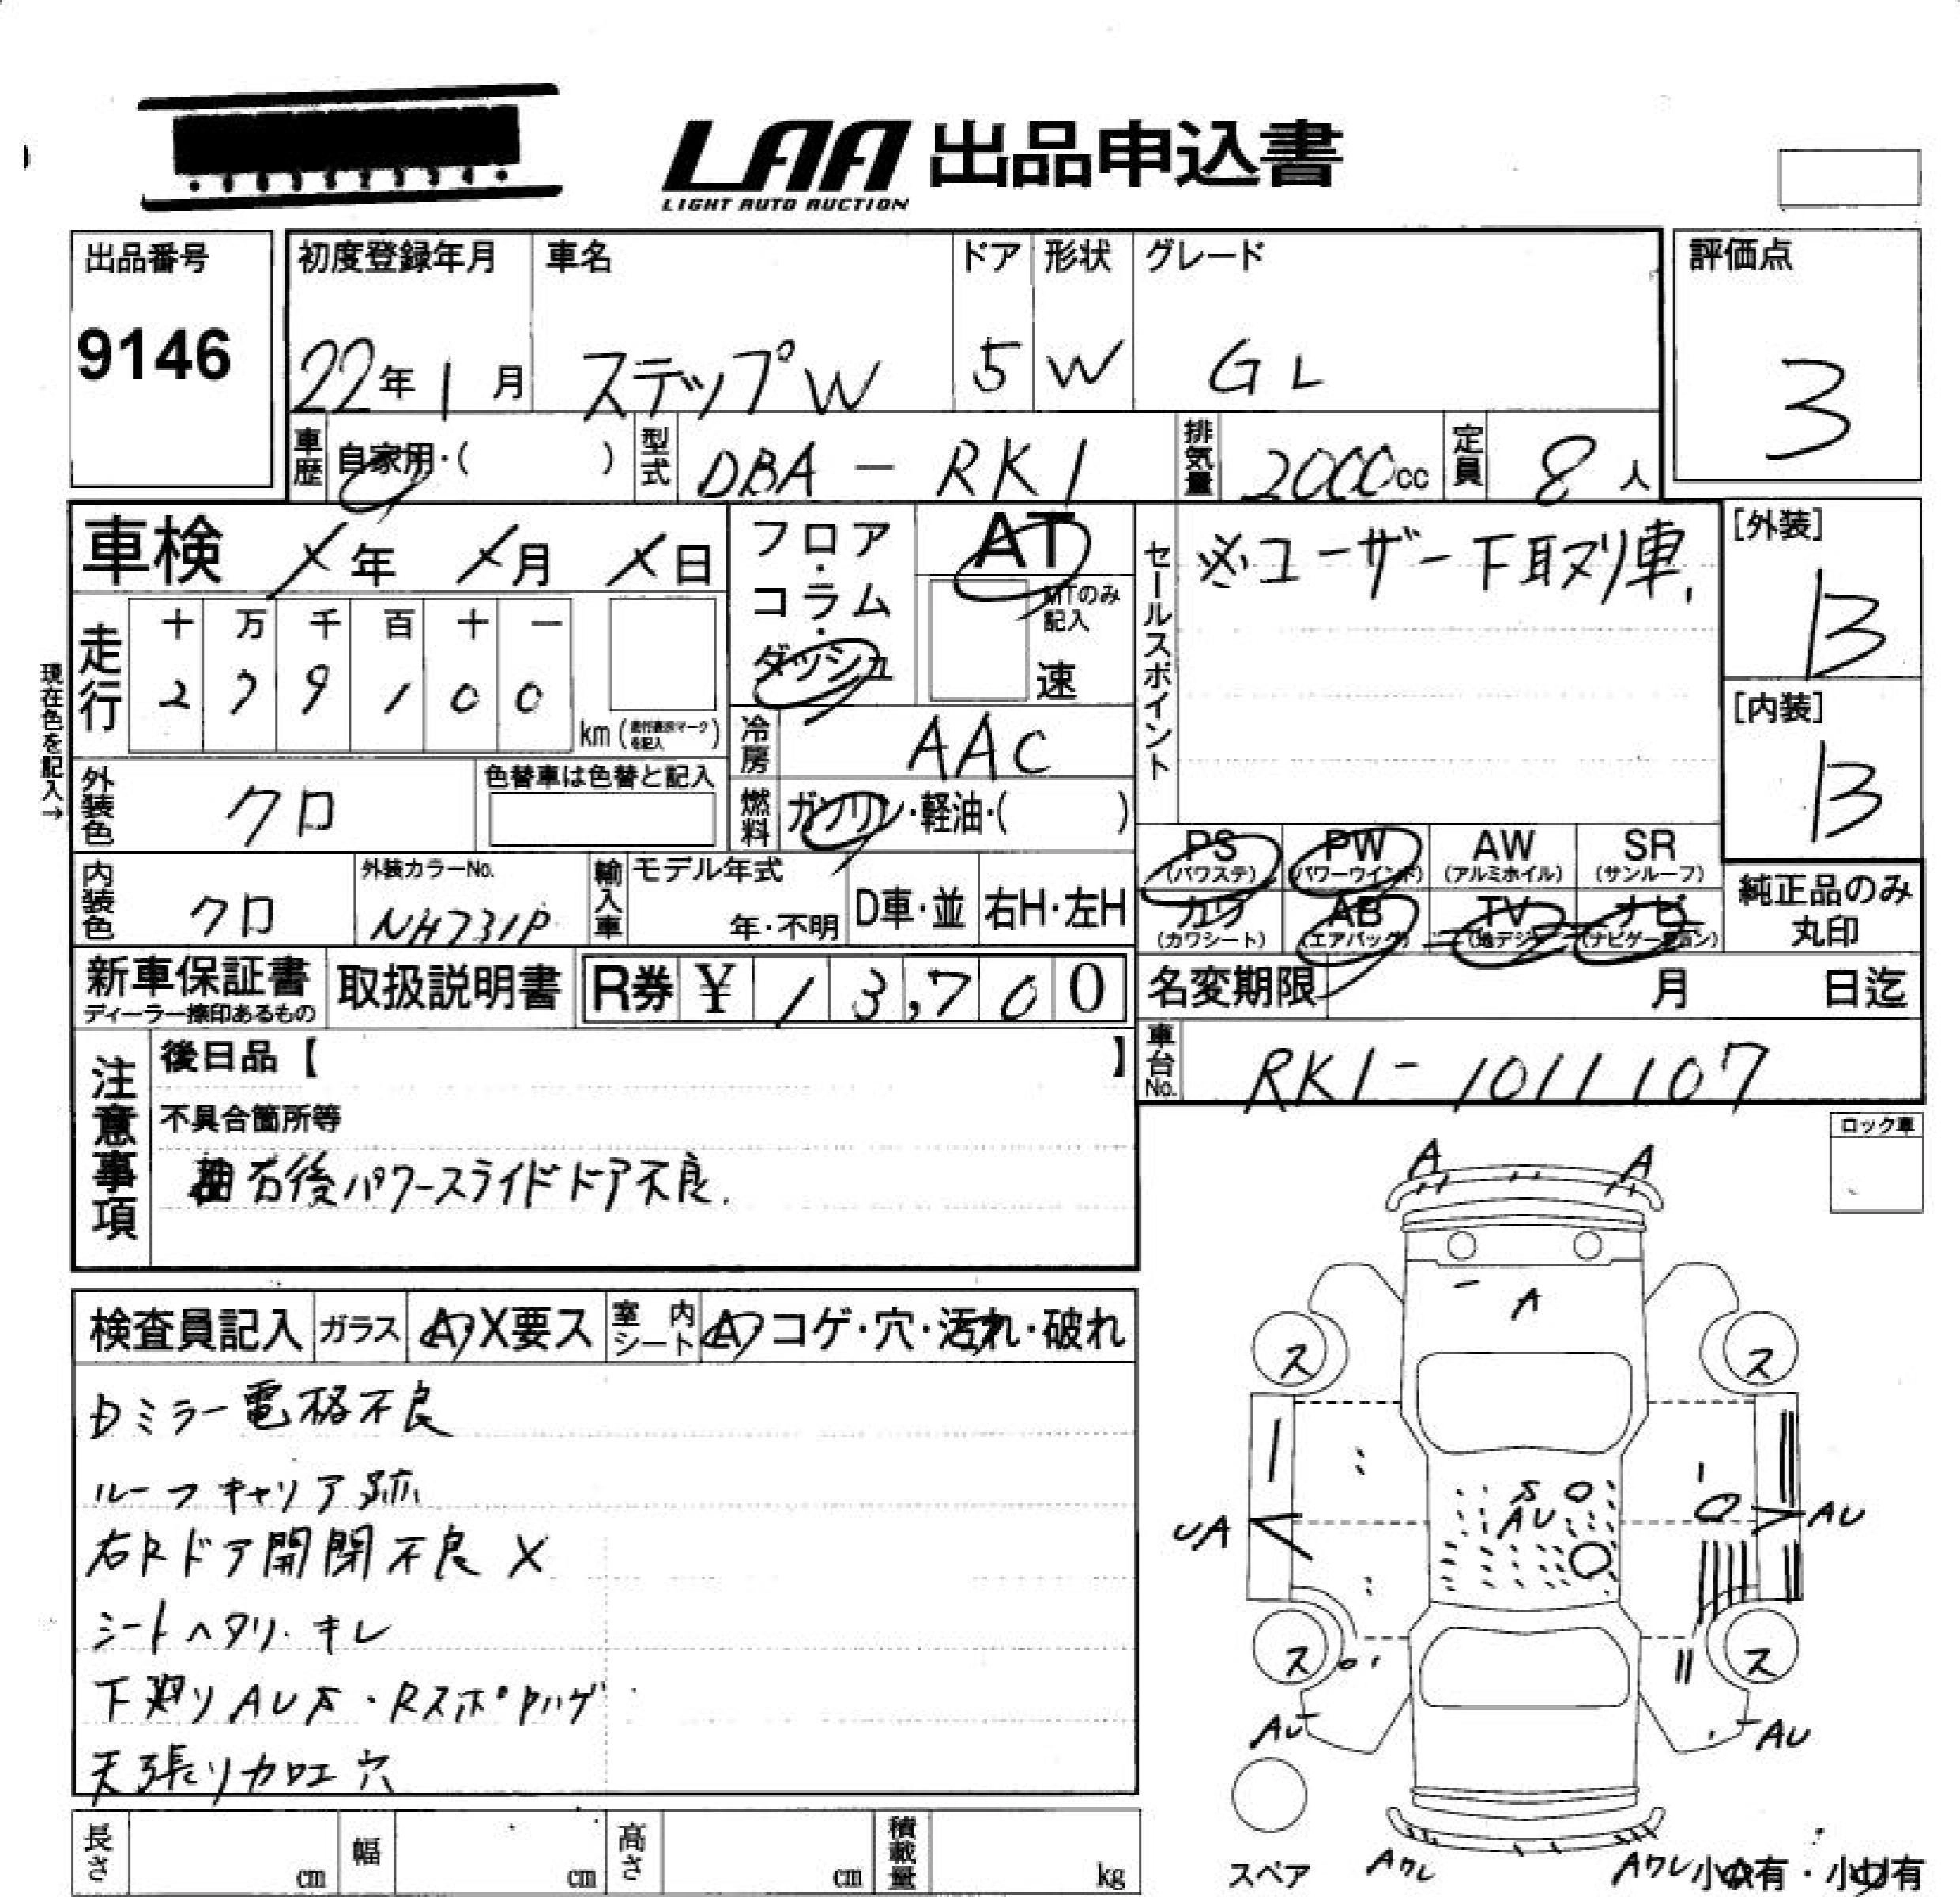 LAA 出品申込書
LIGHT AUTO AUCTION
出品番号
9146
初度登録年月 車名 ドア 形状 グレード
22年 1月 ステップW 5 W GL
評価点
3
車歴 自家用・( ) 型式 DBA-RK1 排気量 2000cc 定員 8人
車検 X年 X月 X日
フロア・コラム・ダッシュ
AT
MTのみ記入
速
セールスポイント
※ユーザー下取り車.
[外装]
B
[内装]
B
現在色を記入→
走行 十 万 千 百 十 一
2 7 9 1 0 0 km (走行表示マークを記入)
冷房 AAC
外装色 クロ 色替車は色替と記入
燃料 ガソリン・軽油・( )
内装色 クロ 外装カラーNo. NH731P
輸入車 モデル年式 年・不明 D車・並 右H・左H
PS (パワステ) PW (パワーウインド) AW (アルミホイル) SR (サンルーフ)
カワ (カワシート) AB (エアバッグ) TV (地デジ) ナビ (ナビゲーション)
純正品のみ丸印
新車保証書 ディーラー捺印あるもの 取扱説明書 R券 ¥ 13,700
名変期限 月 日迄
車台No. RK1-1011107
注意事項
後日品【 】
不具合箇所等
右後パワースライドドア不良.
ロック車
検査員記入 ガラス A・X要ス 室内シート A・コゲ・穴・汚れ・破れ
ミラー電格不良
ルーフキャリア跡
右Rドア開閉不良 X
シートヘタリ・キレ
下廻りAUS・Rスポ
天張り加工穴
A A
A
ス ス
S
AU
UA AU
ス ス
AU AU
スペア Aワレ Aワレ 小 有・小 有
長さ cm 幅 cm 高さ cm 積載量 kg